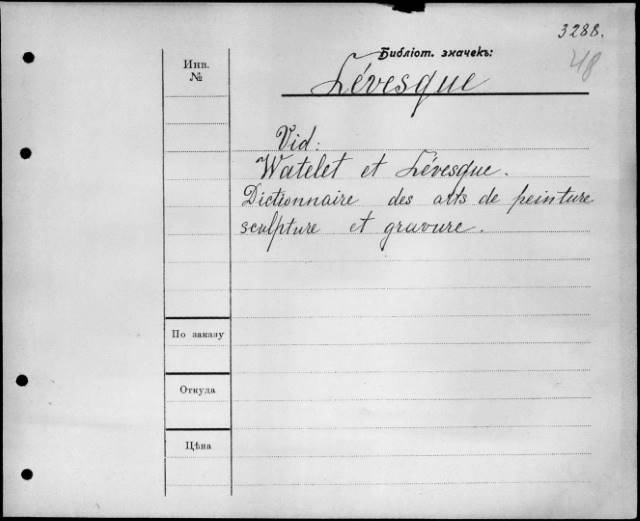 3288.
48
Библіот. значекъ:
Инв.
№
Lévesque
Vid:
Watelet et Lévesque.
Dictionnaire des arts de peinture
sculpture et gravure.
По заказу
Откуда
Цѣна